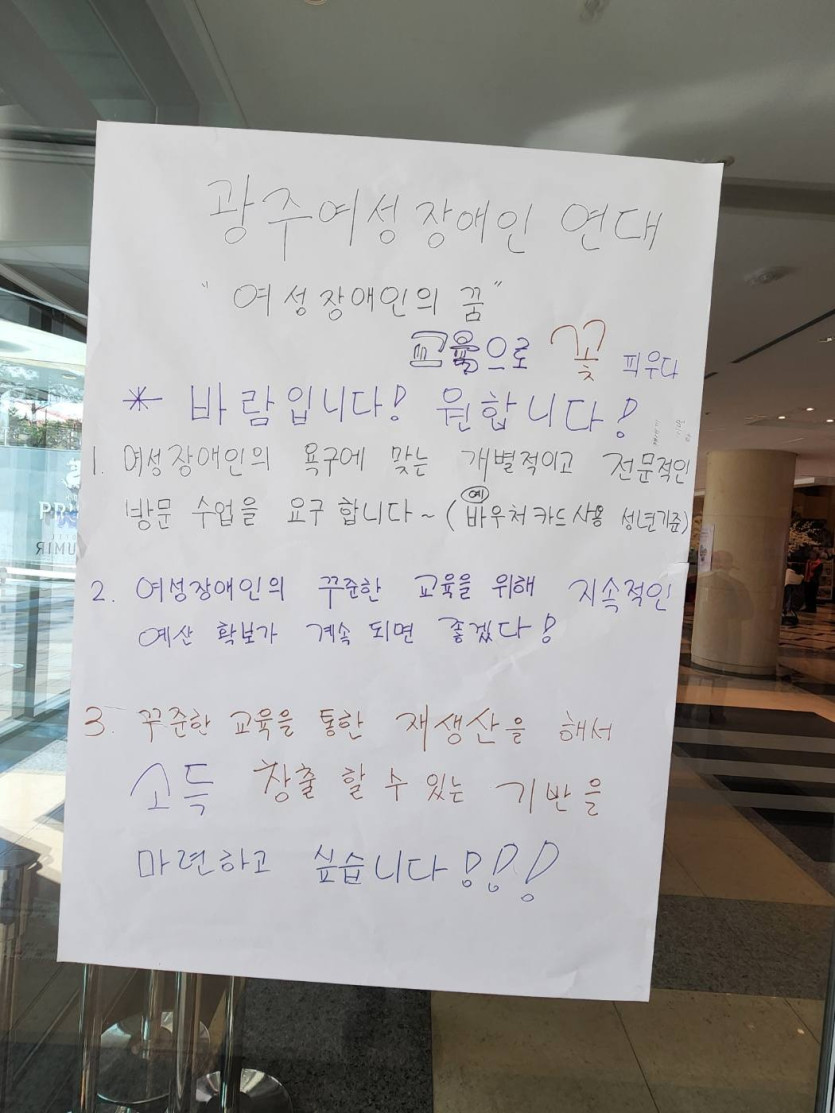 광주여성장애인 연대
"여성장애인의 꿈"
교육으로 꽃 피우다
* 바람입니다! 원합니다!
1. 여성장애인의 욕구에 맞는 개별적이고 전문적인
방문 수업을 요구 합니다~ (예 바우처카드 사용 성년기준)
2. 여성장애인의 꾸준한 교육을 위해 지속적인
예산 확보가 계속 되면 좋겠다!
3. 꾸준한 교육을 통한 재생산을 해서
소득 창출 할 수 있는 기반을
마련하고 싶습니다!!!